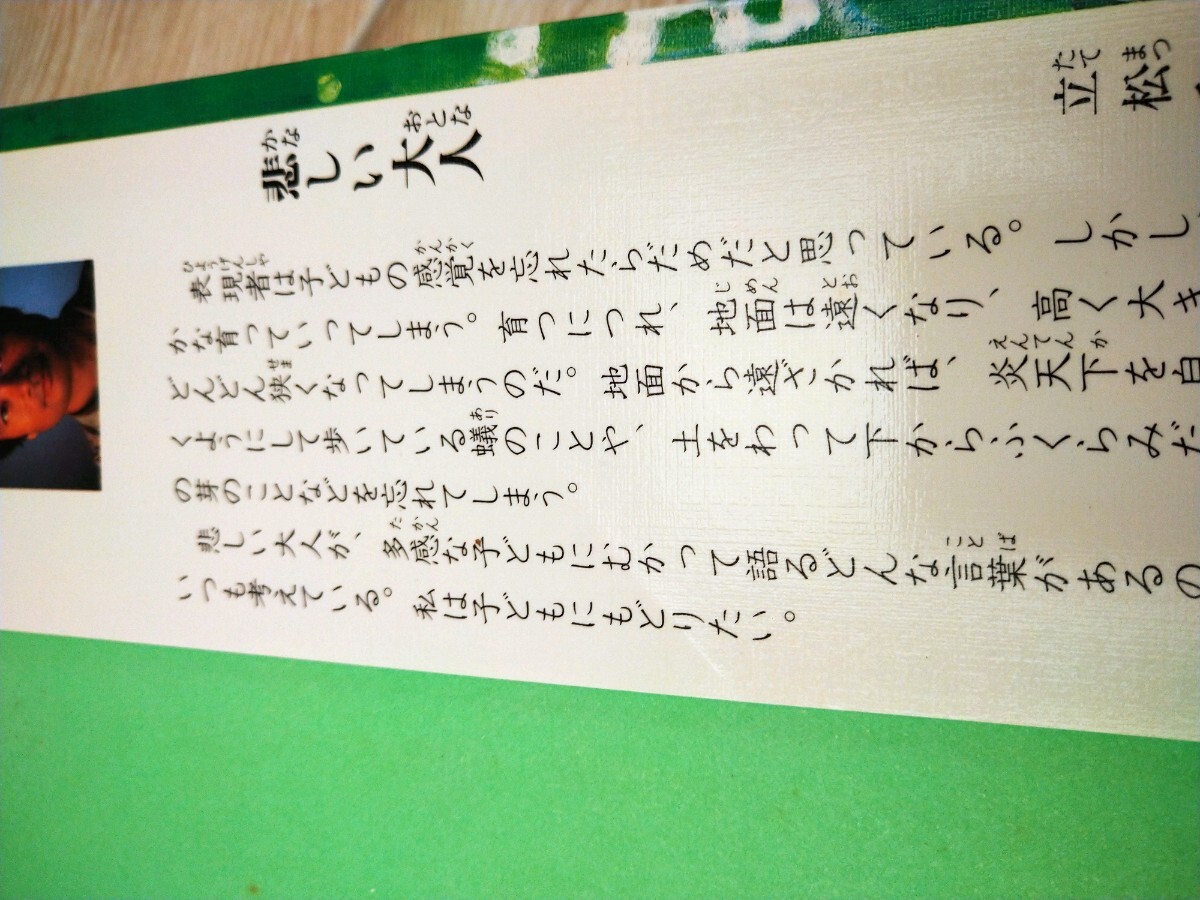 悲しい大人
立松
表現者は子どもの感覚を忘れたらだめだと思っている。しかし
かな育っていってしまう。育つにつれ、地面は遠くなり、高く大き
どんどん狭くなってしまうのだ。地面から遠ざかれば、炎天下を自
くようにして歩いている蟻のことや、土をわって下からふくらみだ
の芽のことなどを忘れてしまう。
悲しい大人が、多感な子どもにむかって語るどんな言葉があるの
いつも考えている。私は子どもにもどりたい。